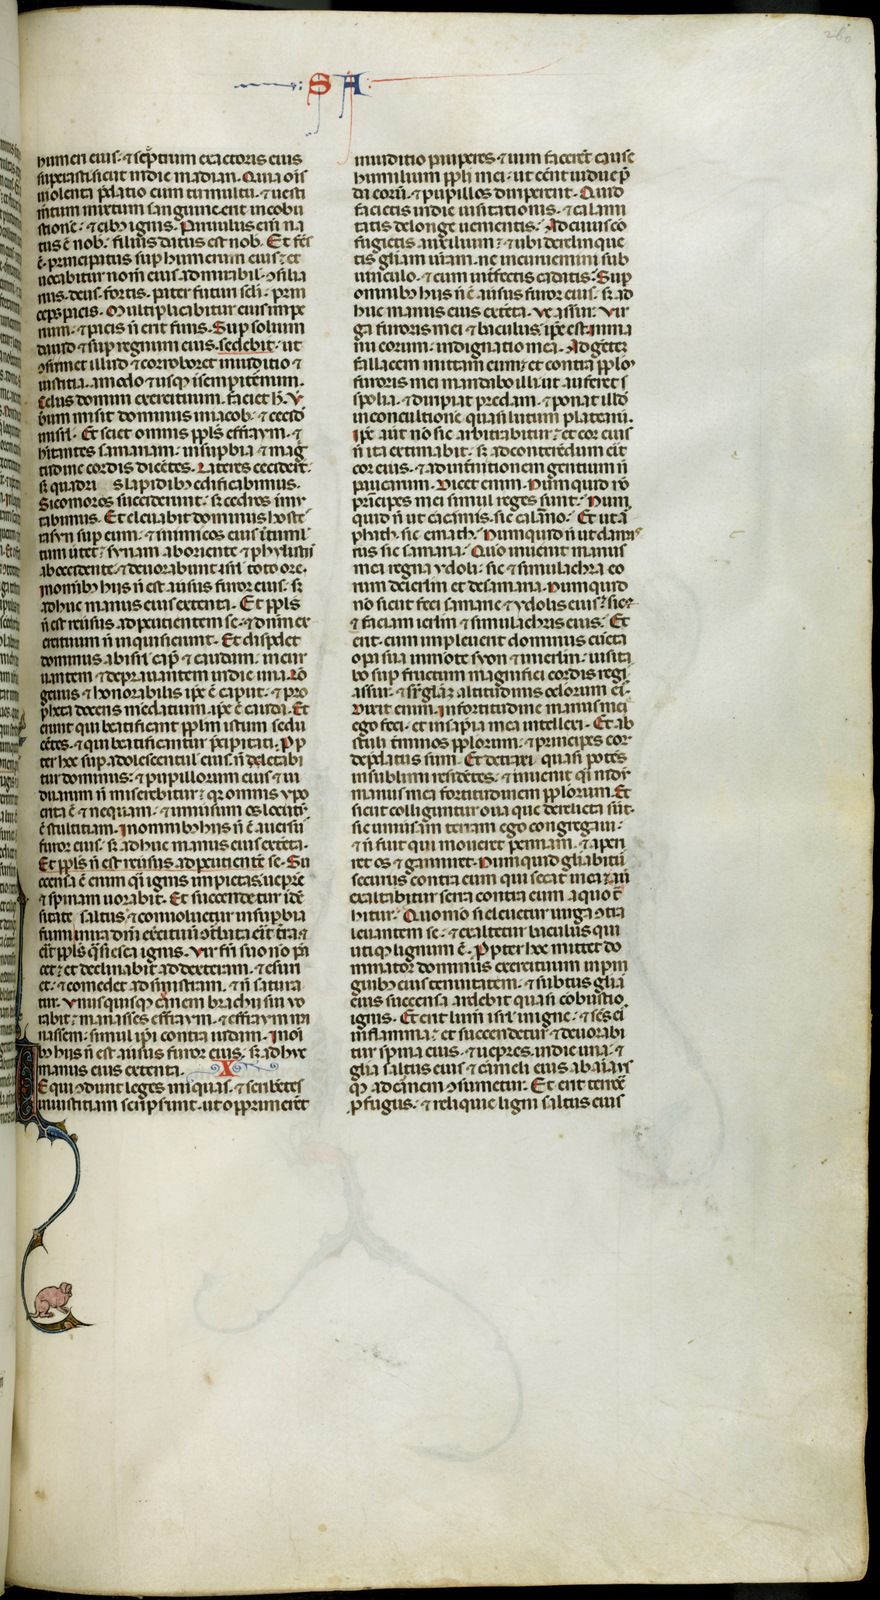 260
S A
humeri eius· ⁊ sceptrum exactoris eius
superasti sicut in die madian· Quia oīs
uiolenta p̄datio cum tumultu· ⁊ uesti
mentum mixtum sanguine erit in cobu
stione· ⁊ cib3 ignis· Paruulus eni3 na
tus ē nob· filius datus est nob· Et fcūs
ē principatus sup humerum eius· et
uocabitur nom̄ eius admirabil· ꝯsilia
rius· deus· fortis· pater futuri scli· prin
ceps pacis· Multiplicabitur eius impe
rium· ⁊ pacis ñ erit finis· Sup solium
dauid ⁊ sup regnum eius· sedebit· ut
ꝯfirmet illud ⁊ corroboret in iuditio ⁊
iustitia· amodo ⁊ usq3 ī sempiternum·
Zelus domini exercituum faciet h̄· V
bum misit dominus in iacob· ⁊ cecidi
in isrl· Et sciet omnis ppls effraym· ⁊
hitantes samariam· in supbia ⁊ mag
titudine cordis dicētes· Lateres ceciderūt·
s3 quadri s lapidib3 edificabimus·
Sicomoros succiderunt· s3 cedros imu
tabimus· Et eleuabit dominus hoste
rasyn sup eum· ⁊ inimicos eius ī tumul
tum ūtet· syriam ab oriente ⁊ phylistii
ab occidente· ⁊ deuorabunt isrl toto ore·
In omnib3 hiis ñ est ausus furor eius· s3
adhuc manus eius extenta· Et ppls
ñ est reūsus ad percutientem se· ⁊ dnm ex
ercituum ñ inquisierunt· Et dispdet
dominus ab isrl cap̄ ⁊ caudam· incur
uantem ⁊ deprauantem in die una· lō
geuus ⁊ honorabilis ip̄e ē caput· ⁊ pro
pheta docens mendatium· ip̄e ē cauda· Et
erunt qui beatificant pplm istum sedu
cētes· ⁊ qui beatificantur p̄cipitati· Pp
ter hoc sup adolescentul eius· ñ delectabi
tur dominus· ⁊ pupillorum eius ⁊ ui
duarum ñ miserebitur· qr omnis ypo
crita ē ⁊ nequam· ⁊ uniūsum os locutū
ē stultitiam· In omnib3 hiis ñ ē auersus
furor eius· s3 adhuc manus eius extēta·
Et ppls ñ est reūsus ad percutientē se· Su
ccensa ē enim qi ignis impietas· uepre
⁊ spinam uorabit· Et succendetur idē
sitate saltus· ⁊ conuoluetur in supbia
fumi in ira dnī exercituū ꝯturbata est tra· ⁊
erit ppls qsi esca ignis· Vir fri suo nō pa
cet· et declinabit ad dexteram· ⁊ esuri
et· ⁊ comedet ad sinistram· ⁊ ñ satura
tur· Vnusquisq3 carnem brachii sui uo
rabit· manasses effraym· ⁊ effraym ma
nassem· simul ipi contra iudam· In oī
b3 hiis ñ est ausus furor eius· s3 adhuc
manus eius extenta· X
E qui ꝯdunt leges iniquas· ⁊ scribētes
iniustitiam scripserunt· ut opprimerēt
in iuditio pauperes· ⁊ uim facerēt cause
humilium ppli mei· ut eēnt uidue p̄
da eorū· ⁊ pupillos diriperent· Quid
facietis in die uisitationis· ⁊ calami
tatis de longe uenientis· Ad cuius cō
fugietis auxilium· ⁊ ubi derelinque
tis gliam uram· ne incuruemini sub
uinculo· ⁊ cum int̄fectis cadatis· Sup
omnib3 hiis ñ ē ausus furor eius· s3 ad
huc manus eius extēta· Ve assur· Vir
ga furoris mei ⁊ baculus ip̄e est· in ma
nu eorum· indignatio mea· Ad gētē
fallacem mittam eum· et contra pplm
furoris mei mandabo illi· ut auferet s
spolia· ⁊ diripiat predam· ⁊ ponat illū
in conculcatione quasi lutum platearū·
Ip̄e aūt nō sic arbitrabitur· et cor eius
ñ ita extimabit· s3 ad conterēdum erit
cor eius· ⁊ ad int̄nitionem gentium ñ
paucarum· Dicet enim· Numquid nō
prīncipes mei simul reges sunt· Num
quid ñ ut carcamis· sic calano· Et ut a
phath· sic emath· Numquid ñ ut damas
cus sic samaria· Quō inuenit manus
mea regna ydoli· sic ⁊ simulachra eo
rum de ierlm et de samaria· Numquid
nō sicut feci samarie ⁊ ydolis eius· sic
⁊ faciam ierlm ⁊ simulachris eius· Et
erit· cum impleuerit dominus cūcta
opa sua in mōte syon ⁊ in ierlm· uisita
bo sup fructum magnifici cordis regi
assur· ⁊ sr glam altitudinis oclorum eī·
Dixit enim· In fortitudine manus mei
ego feci· et in sapia mea intellexi· Et ab
stuli t̄minos pplorum· ⁊ principes eor
dep̄datus sum· Et detraxi quasi potēs
in sublimi residētes· ⁊ inuenit qi nidū
manus mea fortitudinem pplorum· Et
sicut colliguntur oua que derelicta sūt·
sic uniūsam terram ego congregaui·
⁊ ñ fuit qui moueret pennam· ⁊ aperi
ret os ⁊ ganniret· Numquid gliabitū
securis contra eum qui secat in ea· aū
exaltabitur serra contra eum a quo t̄
hitur· Quomō si eleuetur uirga ꝯtra
leuantem se· ⁊ exaltetur baculus qui
utiq3 lignum ē· Ppter hoc mittet do
minator dominus exercituum in pin
guib3 eius tenuitatem· ⁊ subtus glia
eius succensa ardebit quasi cōbustio
ignis· Et erit lum̄ isrl in igne· ⁊ scs eī
in flamma· et succendetur ⁊ deuorabi
tur spina eius· ⁊ uepres in die una· ⁊
glia saltus eius ⁊ carmeli eius ab aīa us
q3 ad carnem ꝯsumetur· Et erit terrore
pfugus· ⁊ reliquie ligni saltus eius